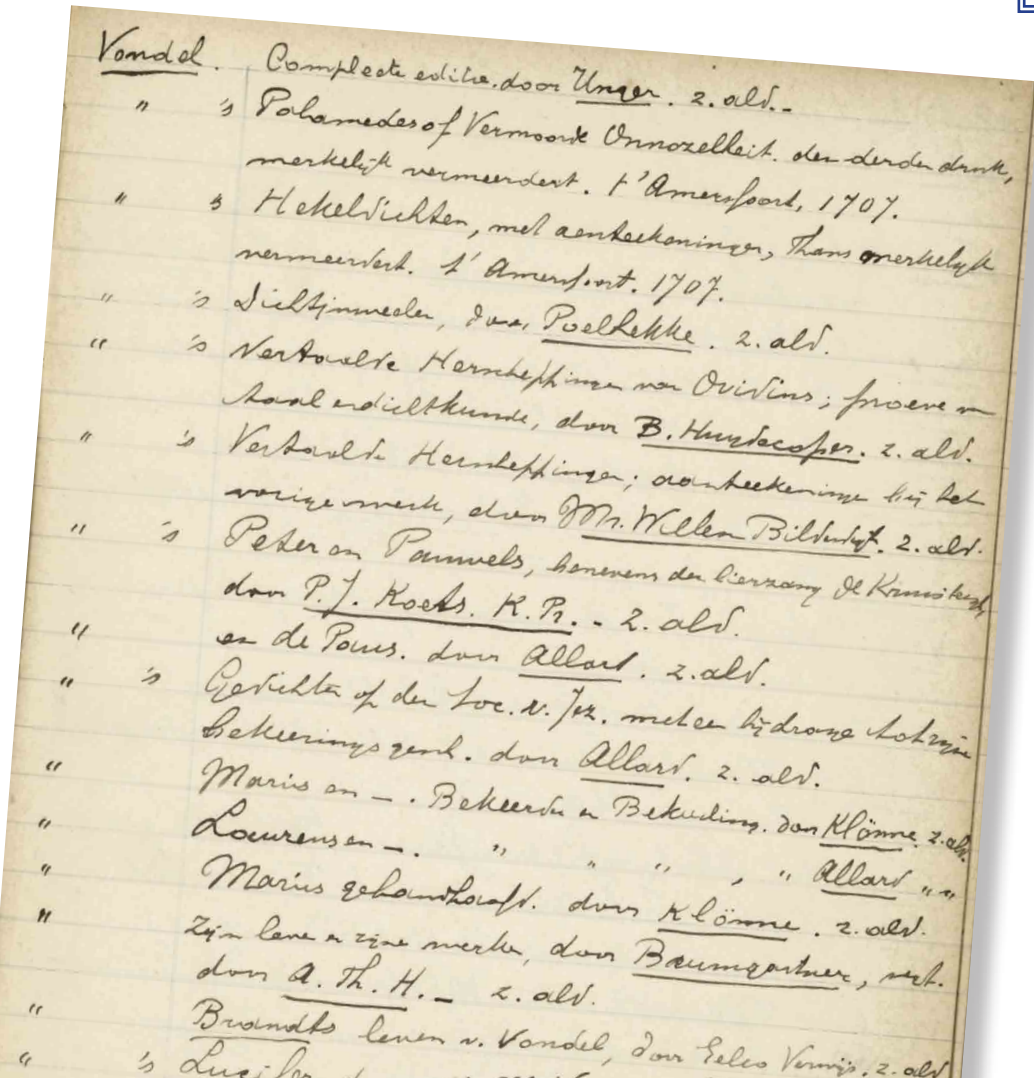 Vondel. Compleete editie door Unger. z. ald.-
" 's Palamedes of Vermoorde Onnozelheit. den derden druk,
merkelijk vermeerdert. t'Amersfoort, 1707.
" 's Hekeldichten, met aenteekeningen, Thans merkelijk
vermeerdert. t'Amersfoort. 1707.
" 's Dichtjuweelen, door Poelhekke. z. ald.
" 's Vertaalde Herscheppingen van Ovidius; proeve v
taal en dichtkunde, door B. Huydecoper. z. ald.
" 's Vertaalde Herscheppingen; aanteekeningen bij het
vorige werk, door Mr. Willem Bilderdijk. z. ald.
" 's Peter en Pauwels, benevens den lierzang De Kruisbergh,
door P. J. Koets. K. Pr. - z. ald.
" en de Paus. door Allard. z. ald.
" 's Gedichten op der Soc. v. Jez. met een bijdrage tot zijne
bekeeringsgesch. door Allard. z. ald.
" Marius en -. Bekeerde en Bekeering. door Klönne. z. ald.
" Laurens en -. " " " , " Allard " "
" Marius gehandhaafd. door Klönne. z. ald.
" Zijn leven en zijne werken, door Baumgartner, vert.
door A. Th. H. - z. ald.
" Brandts leven v. Vondel, door Eelco Verwijs. z. ald
" 's Lucifer